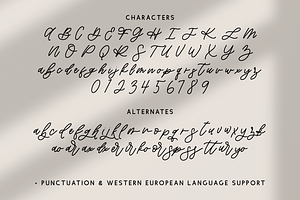 CHARACTERS
A B C D E F G H I J K L M
N O P Q R S T U V W X Y Z
a b c d e f g h i j k l m n o p q r s t u v w x y z
0 1 2 3 4 5 6 7 8 9
ALTERNATES
a b c d e f g h y k l l m n o p q r s t u v w x y z
• PUNCTUATION & WESTERN EUROPEAN LANGUAGE SUPPORT